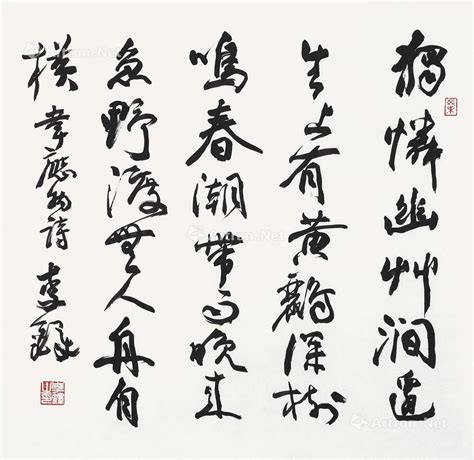 獨憐幽艸澗邊
生上有黃鸝深樹
鳴春潮帶雨晚來
急野渡無人舟自
橫 韋應物詩 李鐸
Artron.Net
Artron.Net
Artron.Net
Artron.Net